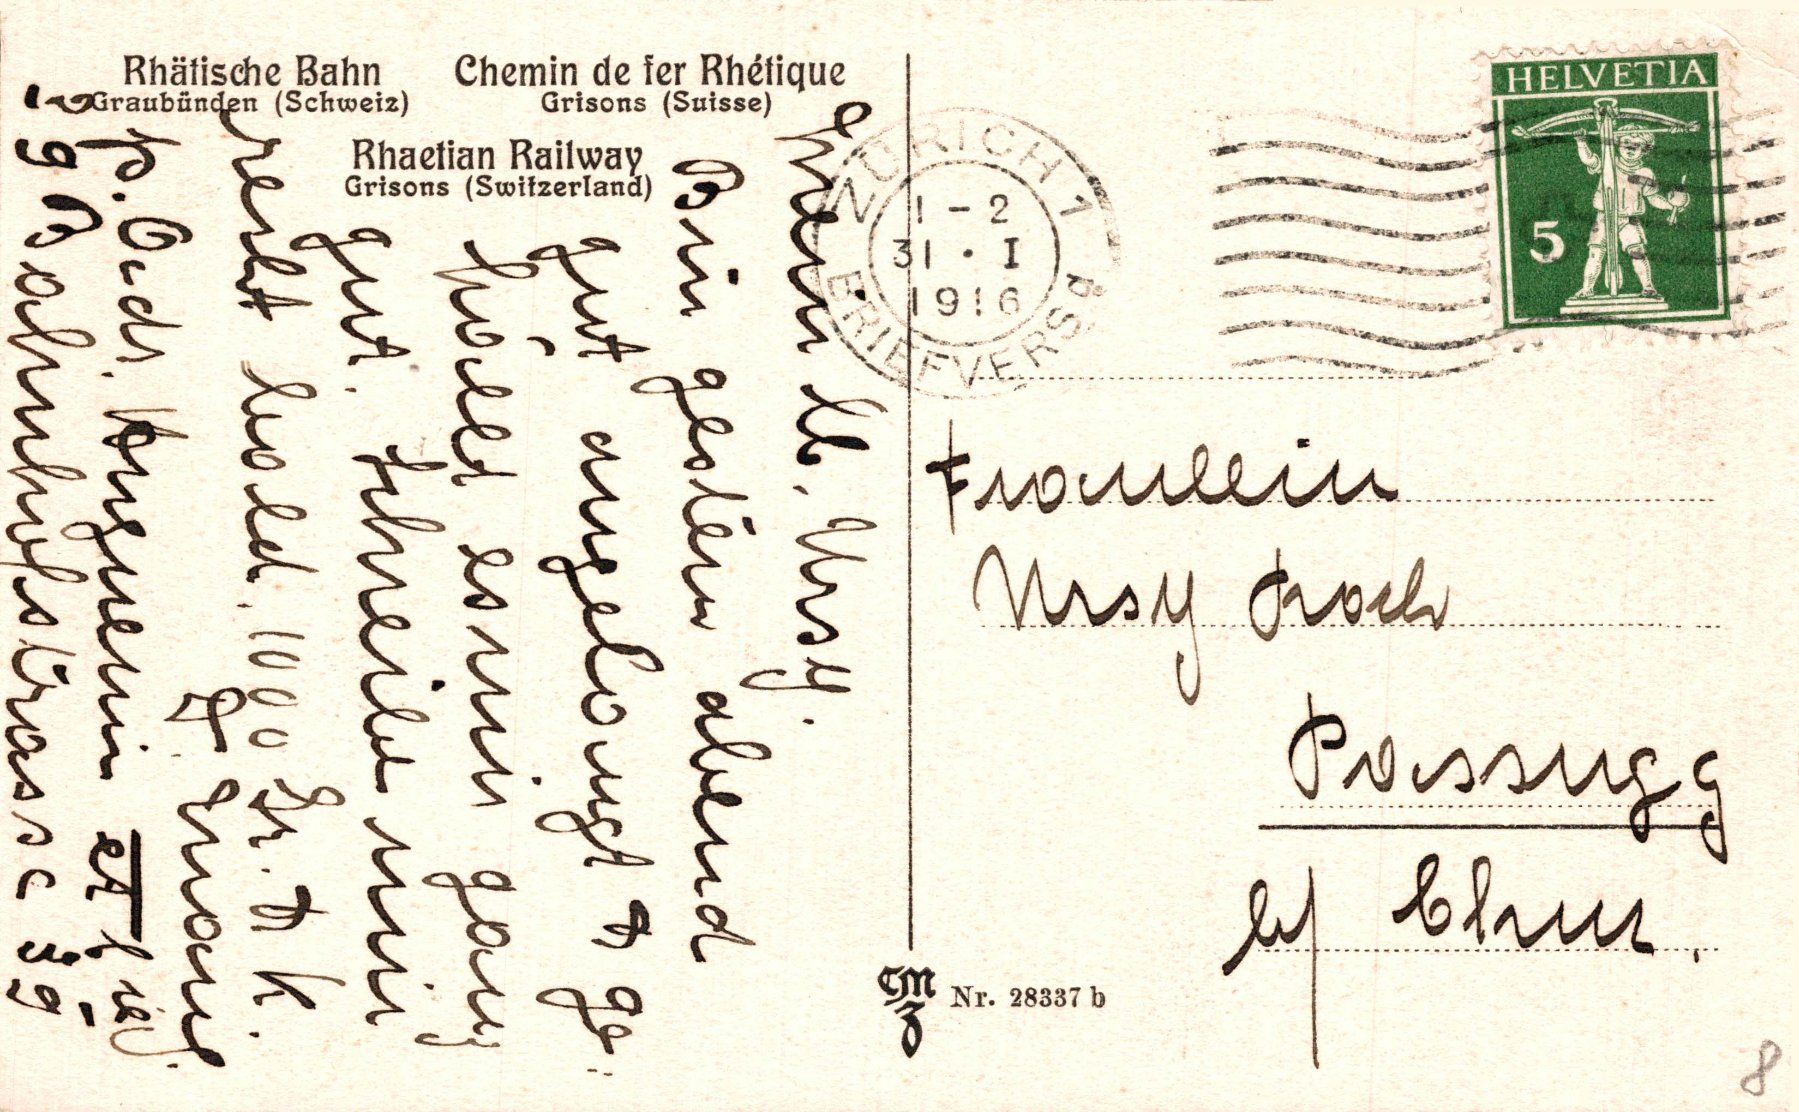 Rhätische Bahn
Graubünden (Schweiz)
Chemin de fer Rhétique
Grisons (Suisse)
Rhaetian Railway
Grisons (Switzerland)
Mein lb. Ursy.
Bin gestern abend
gut angelangt & ge-
fällt es mir ganz
gut. Schreibe mir
recht bald. 1000 Gr. & K.
p. Adr.
Bahnhofstrasse 39
ZÜRICH 1
1-2
31.I
1916
BRIEFVERSD
HELVETIA
5
Fraulein
Ursy Koch
Passugg
b/ Chur.
Nr. 28337 b
8